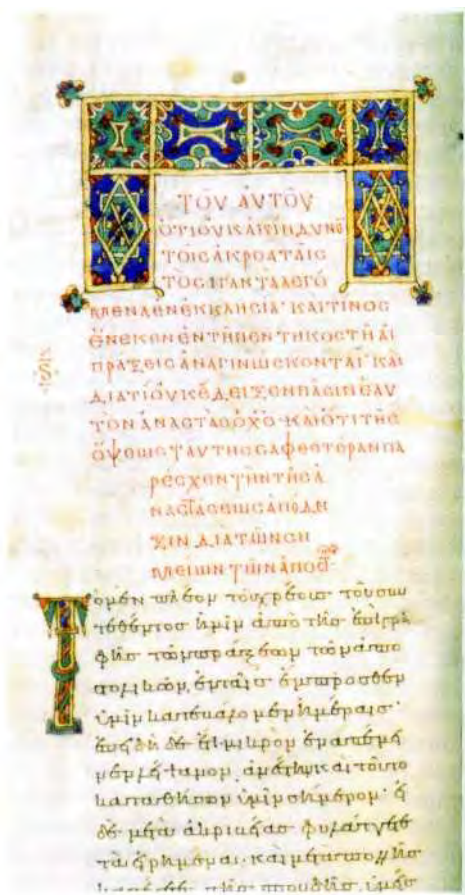 ΤΟΥ ΑΥΤΟΥ
ὅτι οὐκ ἀκίνδυνο
τοῖς ἀκροαταῖς
τὸ σιγᾶν τὰ λεγό
μενα ἐν ἐκκλησία· καὶ τίνος
ἕνεκεν ἐν τῇ πεντηκοστῇ αἱ
πράξεις ἀναγινώσκονται· καὶ
διατί οὐκ ἔδειξεν πᾶσιν ἑαυ
τὸν ἀναστὰς ὁ χς· καὶ ὅτι τῆς
ὄψεως αὐτῆς σαφεστέραν πα
ρέσχεν τὴν τῆς ἀ
ναστάσεως ἀπόδει
ξιν διὰ τῶν ση
μείων τῶν ἀποστ
Τὸ μὲν πλέον τοῦ χρέους τοῦ συν
τεθέντος ἡμῖν ἀπὸ τῆς ἐπιγρα
φῆς τῶν πράξεων τῶν ἀπο
στολικῶν, ἐν ταῖς ἔμπροσθεν
ὑμῖν κατεβάλομεν ἡμέραις·
ἐπειδὴ δὲ ἔτι μικρὸν ἐναπέμει
νεν λείψανον, ἀνέστην καὶ τοῦτο
καταθήσων ὑμῖν σήμερον· εἰ
δὲ μετὰ ἀκριβείας φυλάττετε
τὰ εἰρημένα, καὶ μετὰ πολλῆς
τῆς σπουδῆς, ὑμεῖς